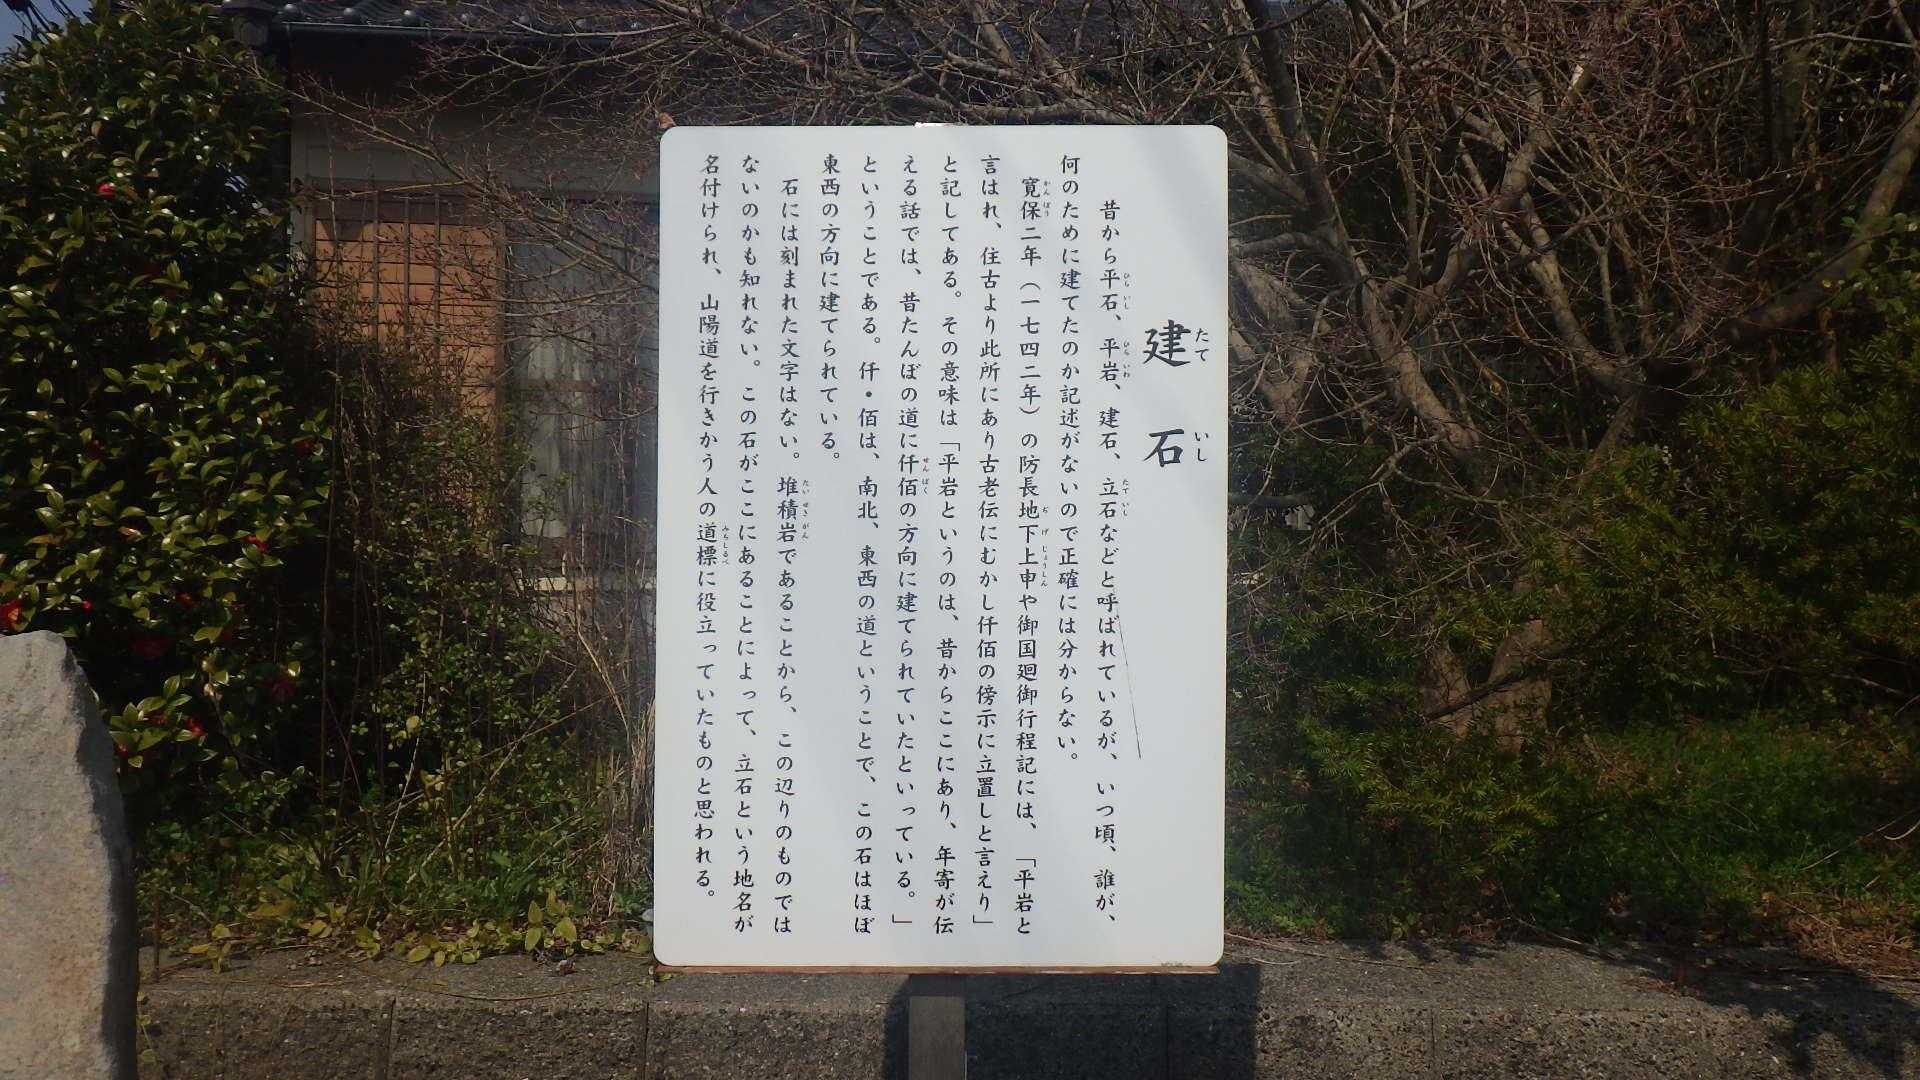 建石
昔から平石、平岩、建石、立石などと呼ばれているが、いつ頃、誰が、
何のために建てたのか記述がないので正確には分からない。
寛保二年（一七四二年）の防長地下上申や御国廻御行程記には、「平岩と
言はれ、住古より此所にあり古老伝にむかし仟佰の傍示に立置しと言えり」
と記してある。その意味は「平岩というのは、昔からここにあり、年寄が伝
える話では、昔たんぼの道に仟佰の方向に建てられていたといっている。」
ということである。仟・佰は、南北、東西の道ということで、この石はほぼ
東西の方向に建てられている。
石には刻まれた文字はない。堆積岩であることから、この辺りのものでは
ないのかも知れない。この石がここにあることによって、立石という地名が
名付けられ、山陽道を行きかう人の道標に役立っていたものと思われる。